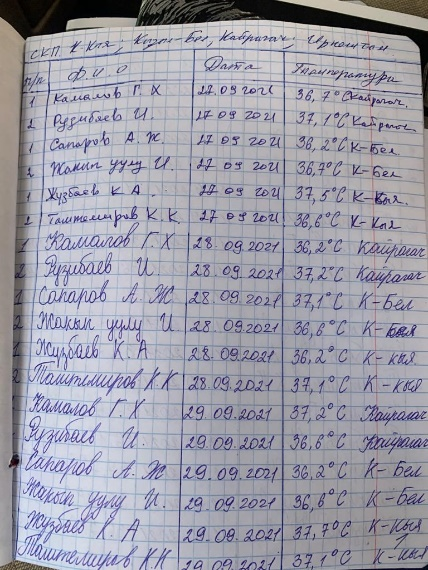 СКП К-Кыя, Козы-Бел, Кайрагач,
п/п Ф.И.О Дата Температури
1 Камалов Г.Х 27.09 2021 36,7°С Кайрагач.
2 Рузибаев И. 27.09 2021 37,1°С Кайрагач
1 Сапаров А.Ж 27 09 2021 36,2°С К-Бел
2 Жакып уулу И. 27 09 2021 36,7°С К-Бел
1 Жузбаев К А. 27 09 2021 37,5°С К-Кыя.
2 Таштемиров К.К 27 09 2021 36,6°С К-Кыя
1 Камалов Г.Х 28.09.2021 36,2°С Кайрагач
2 Рузибаев И. 28.09.2021 37,2°С Кайрагач
1 Сапаров А.Ж 28.09.2021 37,1°С К-Бел
2 Жакып уулу И. 28.09.2021 36,6°С К-кыя
1 Жузбаев К.А 28.09.2021 36,2°С К-кыя
2 Таштемиров К.К 28.09.2021 37,1°С К-кыя
Камалов Г.Х 29.09.2021 37,2°С Кайрагач
Рузибаев И. 29.09.2021 36,6°С Кайрагач
Сапаров А.Ж 29.09.2021 36,2°С К-Бел
Жакып уулу И. 29.09.2021 36,8°С К-Бел
Жузбаев К.А 29.09.2021 37,7°С К-Кыя
Таштемиров К.К 29.09.2021 37,1°С К-Кыя